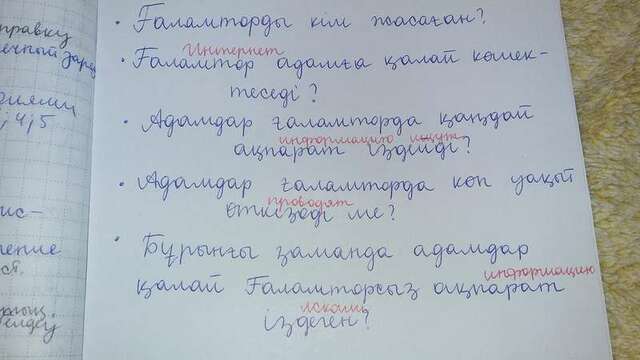 правку
ечный заряд
рииями
, 4, 5
ис-
ление
ст.
• Ғаламторды кім жасаған?
Интернет
• Ғаламтор адамға қалай көмек-
теседі?
• Адамдар ғаламторда қандай
информацию ищут
ақпарат іздейді?
• Адамдар ғаламторда көп уақыт
проводят
өткізеді ме?
• Бұрынғы заманда адамдар
информацию
қалай Ғаламторсыз ақпарат
искали
іздеген?